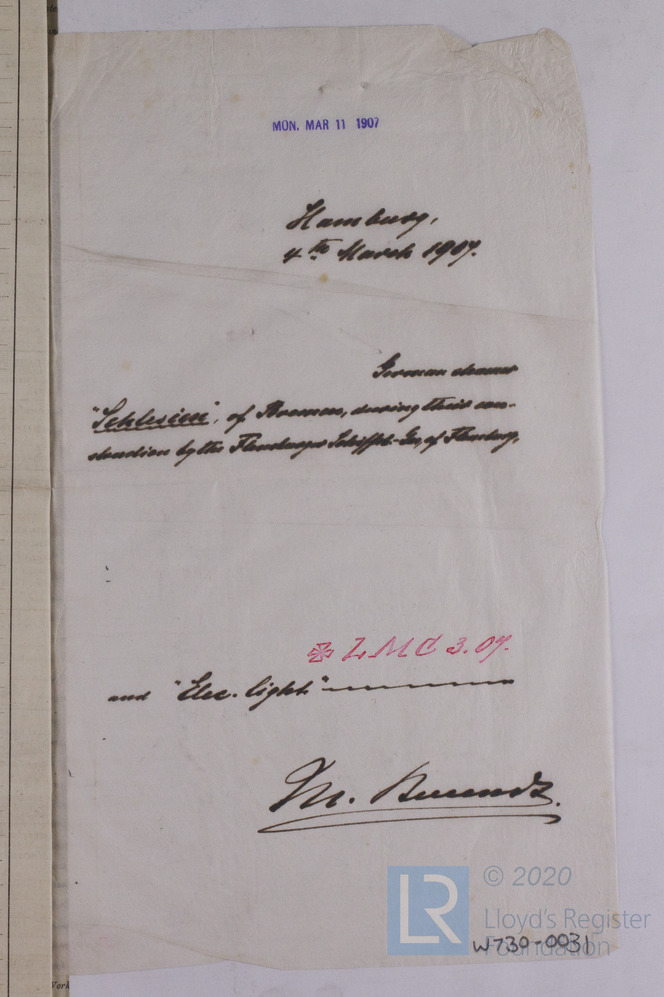 MON. MAR 11 1907
Hamburg,
4th March 1907.
German steamer
"Schlesien", of Bremen, during their con-
struction by the Flensburger Schiffsb.-Ges, of Flensburg.
✠ LMC 3.07.
and "Elec. light"
M.
© 2020
LR
Lloyd's Register
Foundation
W730-0031